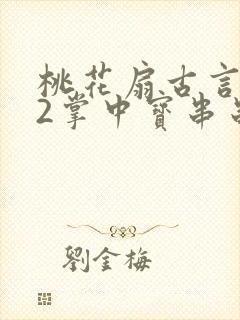 桃花扇古言
2掌中寶串
劉金梅